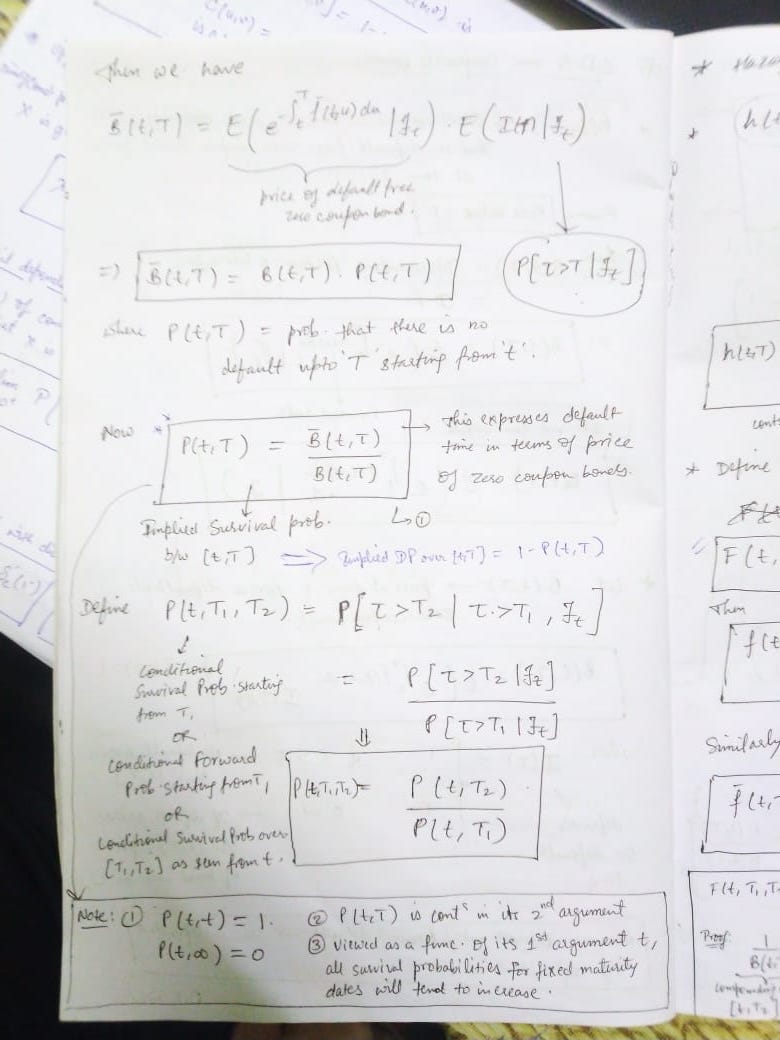 Then we have
B̄(t,T) = E(e^{-∫_t^T f(t,u)du} | ℱ_t) · E(I(T) | ℱ_t)
price of default free
zero coupon bond.
P[τ>T | ℱ_t]
⇒ B̄(t,T) = B(t,T) . P(t,T)
where P(t,T) = prob. that there is no
default upto 'T' starting from 't'.
Now P(t,T) = B̄(t,T) / B(t,T) → This expresses default
time in terms of price
of zero coupon bonds.
↳ ①
Implied Survival prob.
b/w [t,T] ⇒ Implied DP over [t,T] = 1-P(t,T)
Define P(t,T₁,T₂) = P[τ>T₂ | τ>T₁, ℱ_t]
Conditional
Survival Prob. starting
from T₁
OR
Conditional Forward
Prob. starting from T₁
OR
Conditional Survival Prob over
[T₁,T₂] as seen from t.
= P[τ>T₂ | ℱ_t] / P[τ>T₁ | ℱ_t]
⇓
P(t,T₁,T₂) = P(t,T₂) / P(t,T₁)
Note: ① P(t,t) = 1.
P(t,∞) = 0
② P(t,T) is contˢ in its 2nd argument
③ Viewed as a func. of its 1st argument t,
all survival probabilities for fixed maturity
dates will tend to increase.
*
* h(t
h(t,T)
* Define
F(t,
Then
f(t
Similarly
f̄(t,T
F(t,T₁,T
Proof:
1
B(t,
compounding
[t,T₂]